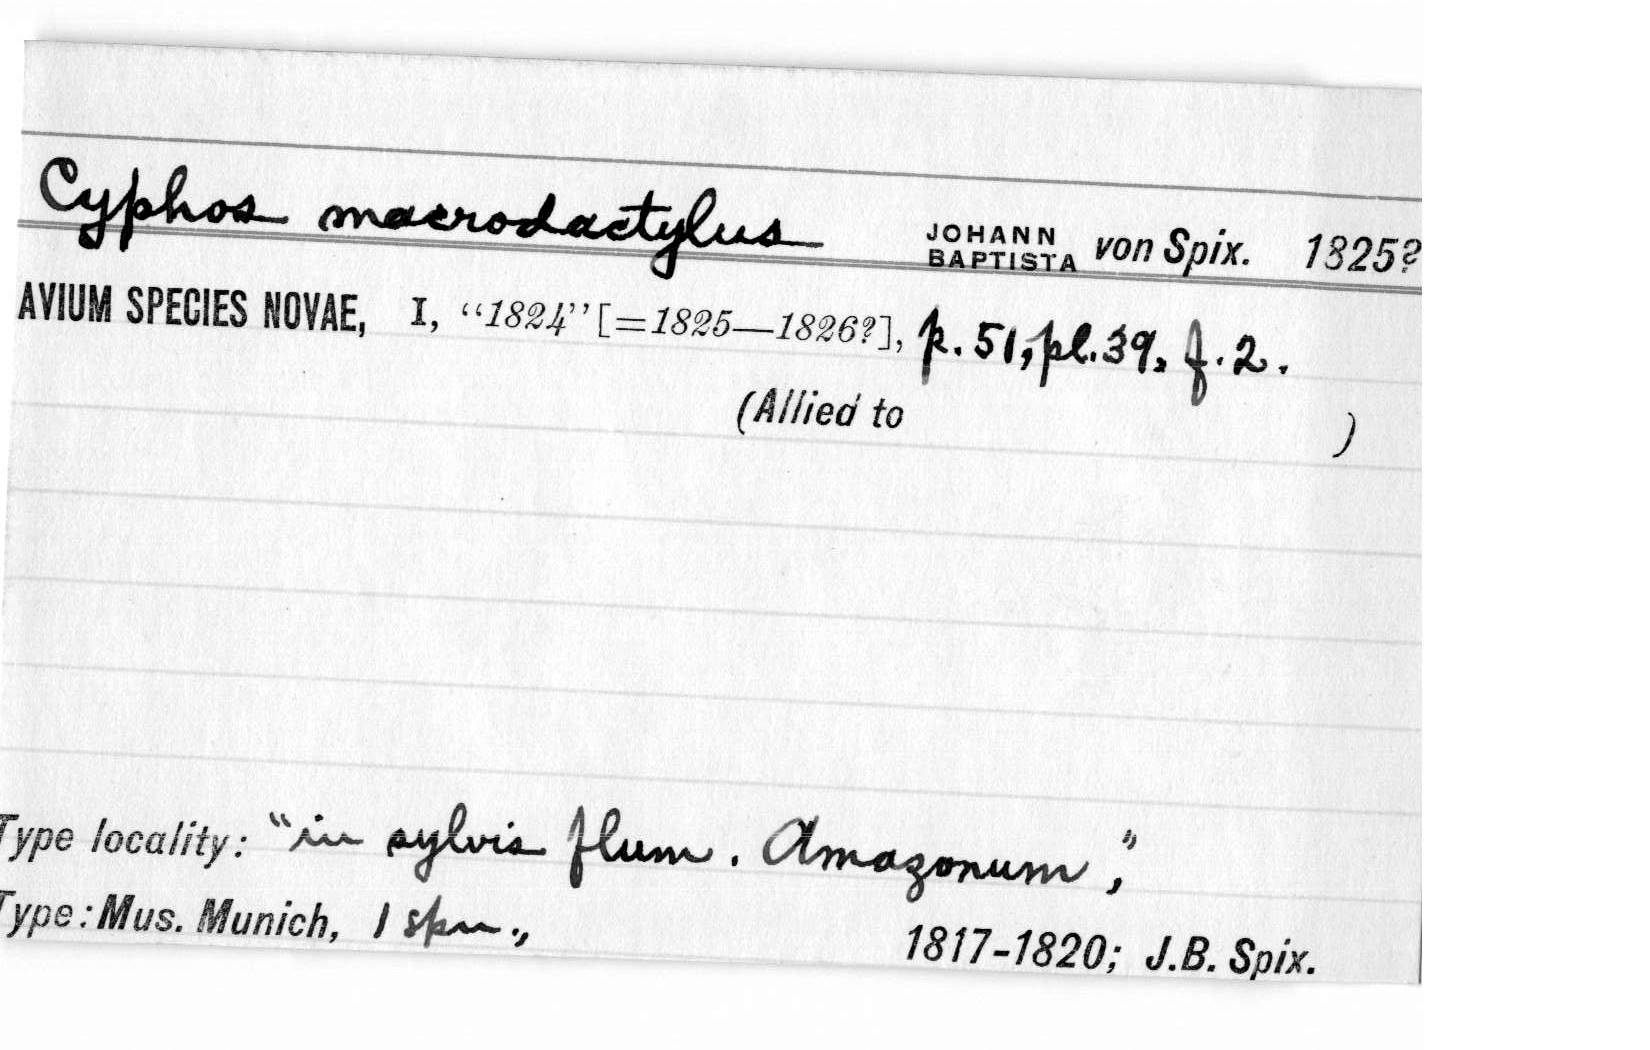 Cyphos macrodactylus JOHANN BAPTISTA von Spix. 1825?
AVIUM SPECIES NOVAE, I, “1824” [=1825—1826?], p. 51, pl. 39, f. 2.
(Allied to )
Type locality: “in sylvis flum. Amazonum,”
Type: Mus. Munich, 1 spm., 1817-1820; J.B. Spix.